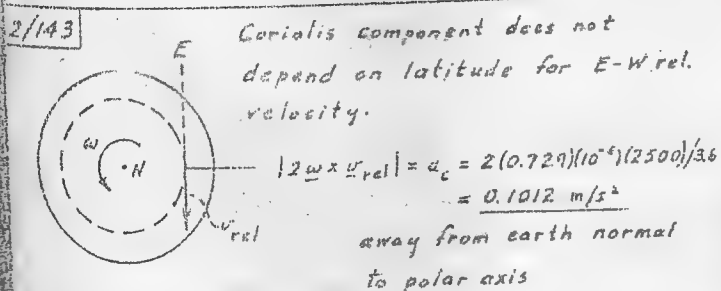 2/143
Coriolis component does not
E
depend on latitude for E-W rel.
velocity.
ω
N
|2ω × v_rel| = a_c = 2(0.729)(10⁻⁴)(2500)/3.6
= 0.1012 m/s²
v_rel
away from earth normal
to polar axis